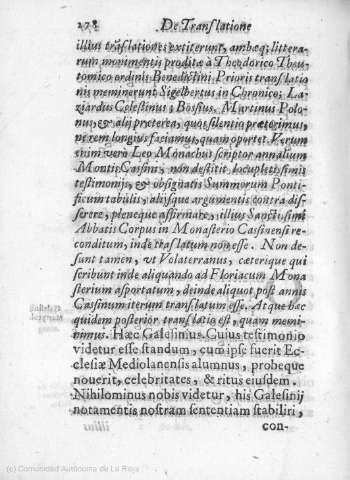 278 De Translatione
illius trãslationes extiterunt, ambæq; littera-
rum monimentis proditæ à Theodorico Theu-
tomico ordinis Benedictini Prioris translatio
nis meminerunt Sigelbertus in Chronico; La-
ziardus Celestinus; Bossius, Martinus Polo-
nus, & alij præterea, quos silentio prætegimus,
ut rem longius faciamus, quam oportet. Verum
enim verò Leo Monachus scriptor annalium
Montis Cassini, non destitit, locupletissimis
testimonijs, & obsignatis Summorum Ponti-
ficum tabulis, alijsque argumentis contra dis-
serere, pleneque affirmare, illius Sanctissimi
Abbatis Corpus in Monasterio Cassinensi re-
conditum, inde traslatum non esse. Non de-
sunt tamen, ut Volaterranus, cæterique qui
scribunt inde aliquando ad Floriacum Mona
sterium asportatum, deinde aliquot post annis
Cassinum iterum translatum esse. Atque hæc
quidem posterior translatio est, quam memi-
nimus. Hæc Galesinius. Cuius testimonio
videtur esse standum, cum ipse fuerit Ec-
clesiæ Mediolanensis alumnus, probeque
nouerit, celebritates, & ritus eiusdem.
Nihilominus nobis videtur, his Galesinij
notamentis nostram sententiam stabiliri,
con-
(c) Comunidad Autónoma de La Rioja